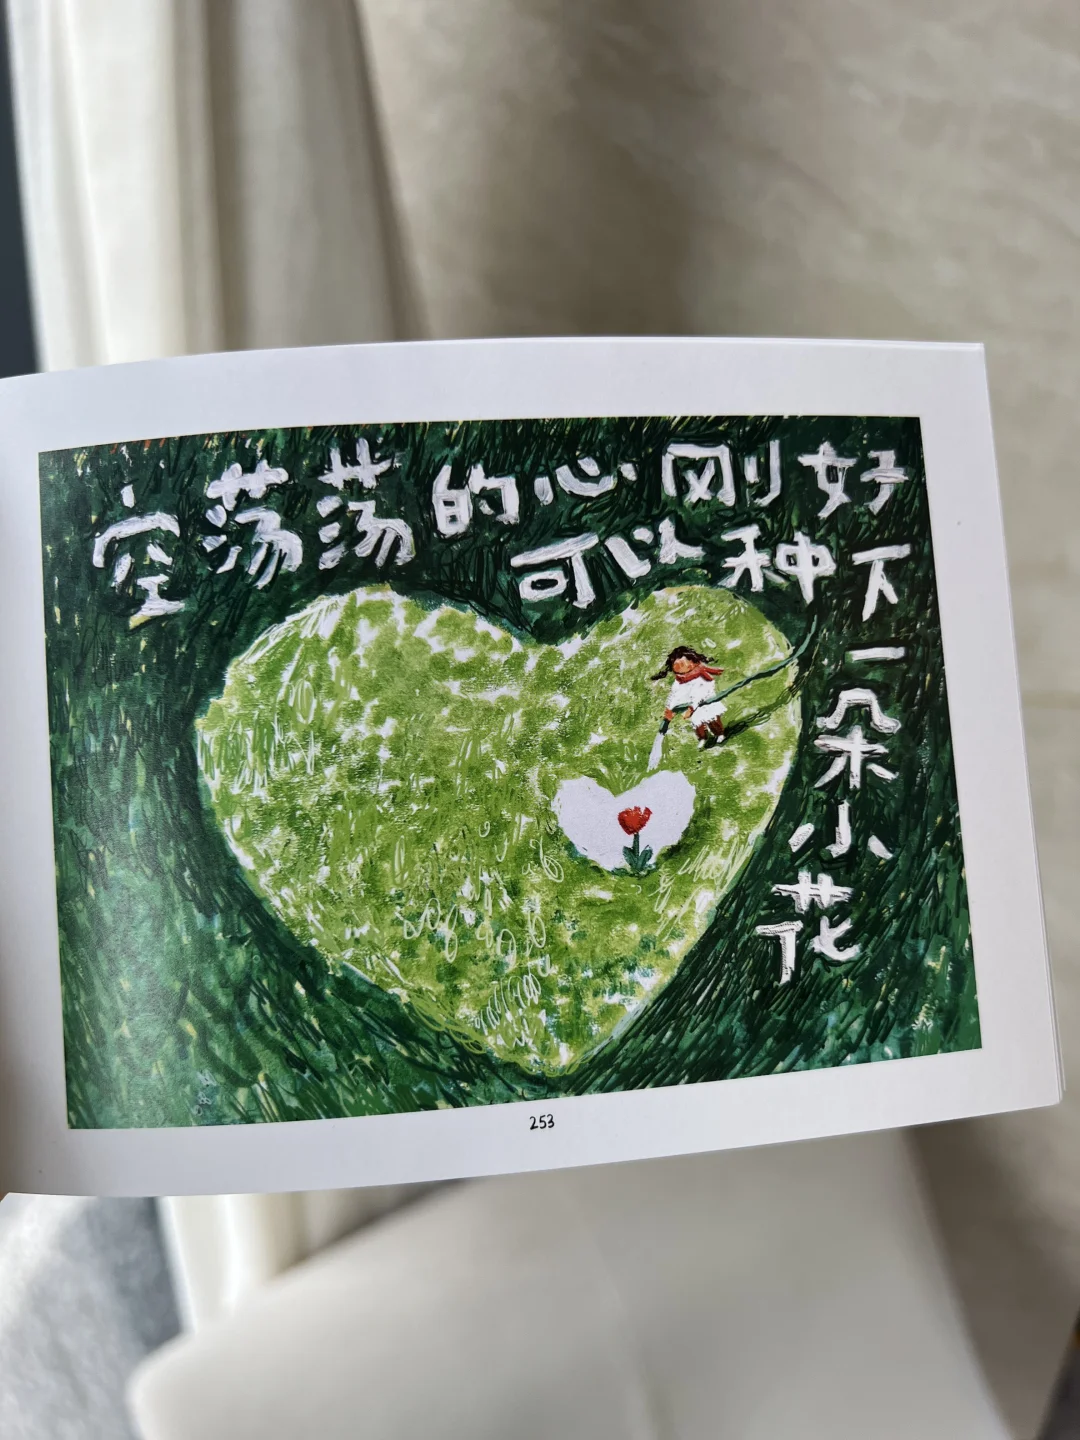 空荡荡的心刚好
可以种下一朵小花
253